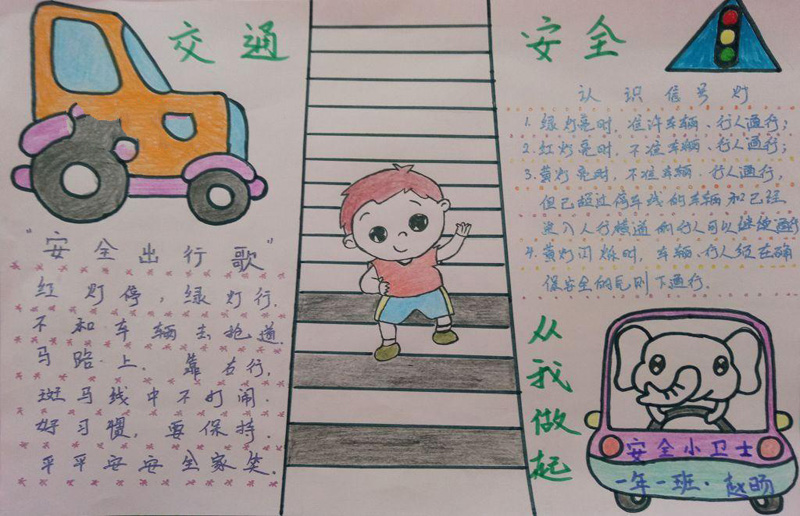 交通安全
"安全出行歌"
红灯停,绿灯行.
不和车辆去抢道.
马路上.靠右行.
斑马线中不打闹.
好习惯,要保持.
平平安安全家笑.
认识信号灯
1.绿灯亮时,准许车辆、行人通行;
2.红灯亮时,不准车辆、行人通行;
3.黄灯亮时,不准车辆、行人通行,
但已超过停车线的车辆和已经
进入人行横道的行人可以继续通行
4.黄灯闪烁时,车辆、行人须在确
保安全的原则下通行.
从我做起
安全小卫士
一年一班.赵旸